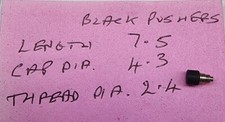 BLACK PUSHERS
LENGTH 7.5
CAP DIA. 4.3
THREAD DIA. 2.4